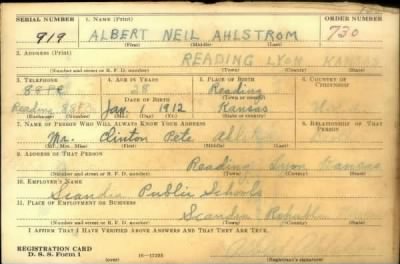 SERIAL NUMBER 1. NAME (Print) ORDER NUMBER
919 ALBERT NEIL AHLSTROM 730
(First) (Middle) (Last)
2. ADDRESS (Print)
READING LYON KANSAS
(Number and street or R. F. D. number) (Town) (County) (State)
3. TELEPHONE 4. AGE IN YEARS 5. PLACE OF BIRTH 6. COUNTRY OF CITIZENSHIP
28 Reading
DATE OF BIRTH (Town or county)
Reading Jan 1 1912 Kansas
(Exchange) (Number) (Mo.) (Day) (Yr.) (State or country)
7. NAME OF PERSON WHO WILL ALWAYS KNOW YOUR ADDRESS 8. RELATIONSHIP OF THAT PERSON
Mr. Clinton Pete
(Mr., Mrs., Miss) (First) (Middle) (Last)
9. ADDRESS OF THAT PERSON
Reading Lyon Kansas
(Number and street or R. F. D. number) (Town) (County) (State)
10. EMPLOYER'S NAME
Scandia Public Schools
11. PLACE OF EMPLOYMENT OR BUSINESS
Scandia
(Number and street or R. F. D. number) (Town) (County) (State)
I AFFIRM THAT I HAVE VERIFIED ABOVE ANSWERS AND THAT THEY ARE TRUE.
REGISTRATION CARD
D. S. S. Form 1 (over) (Registrant's signature)